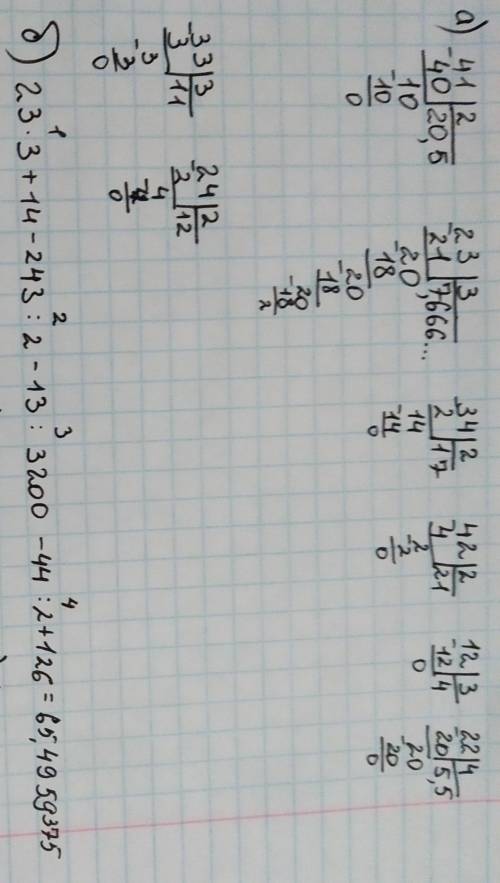 а)
-41|2
40|20,5
-10
10
0
-23|3
21|7,666...
-20
18
-20
18
-20
18
2
-34|2
2|17
-14
14
0
42|2
4|21
-2
2
0
12|3
-12|4
0
-22|4
20|5,5
-20
20
0
-33|3
3|11
-3
3
0
-24|2
2|12
-4
4
0
б) 23·3+14-243:2-13:3200-44:2+126=65,4959375
1 2 3 4